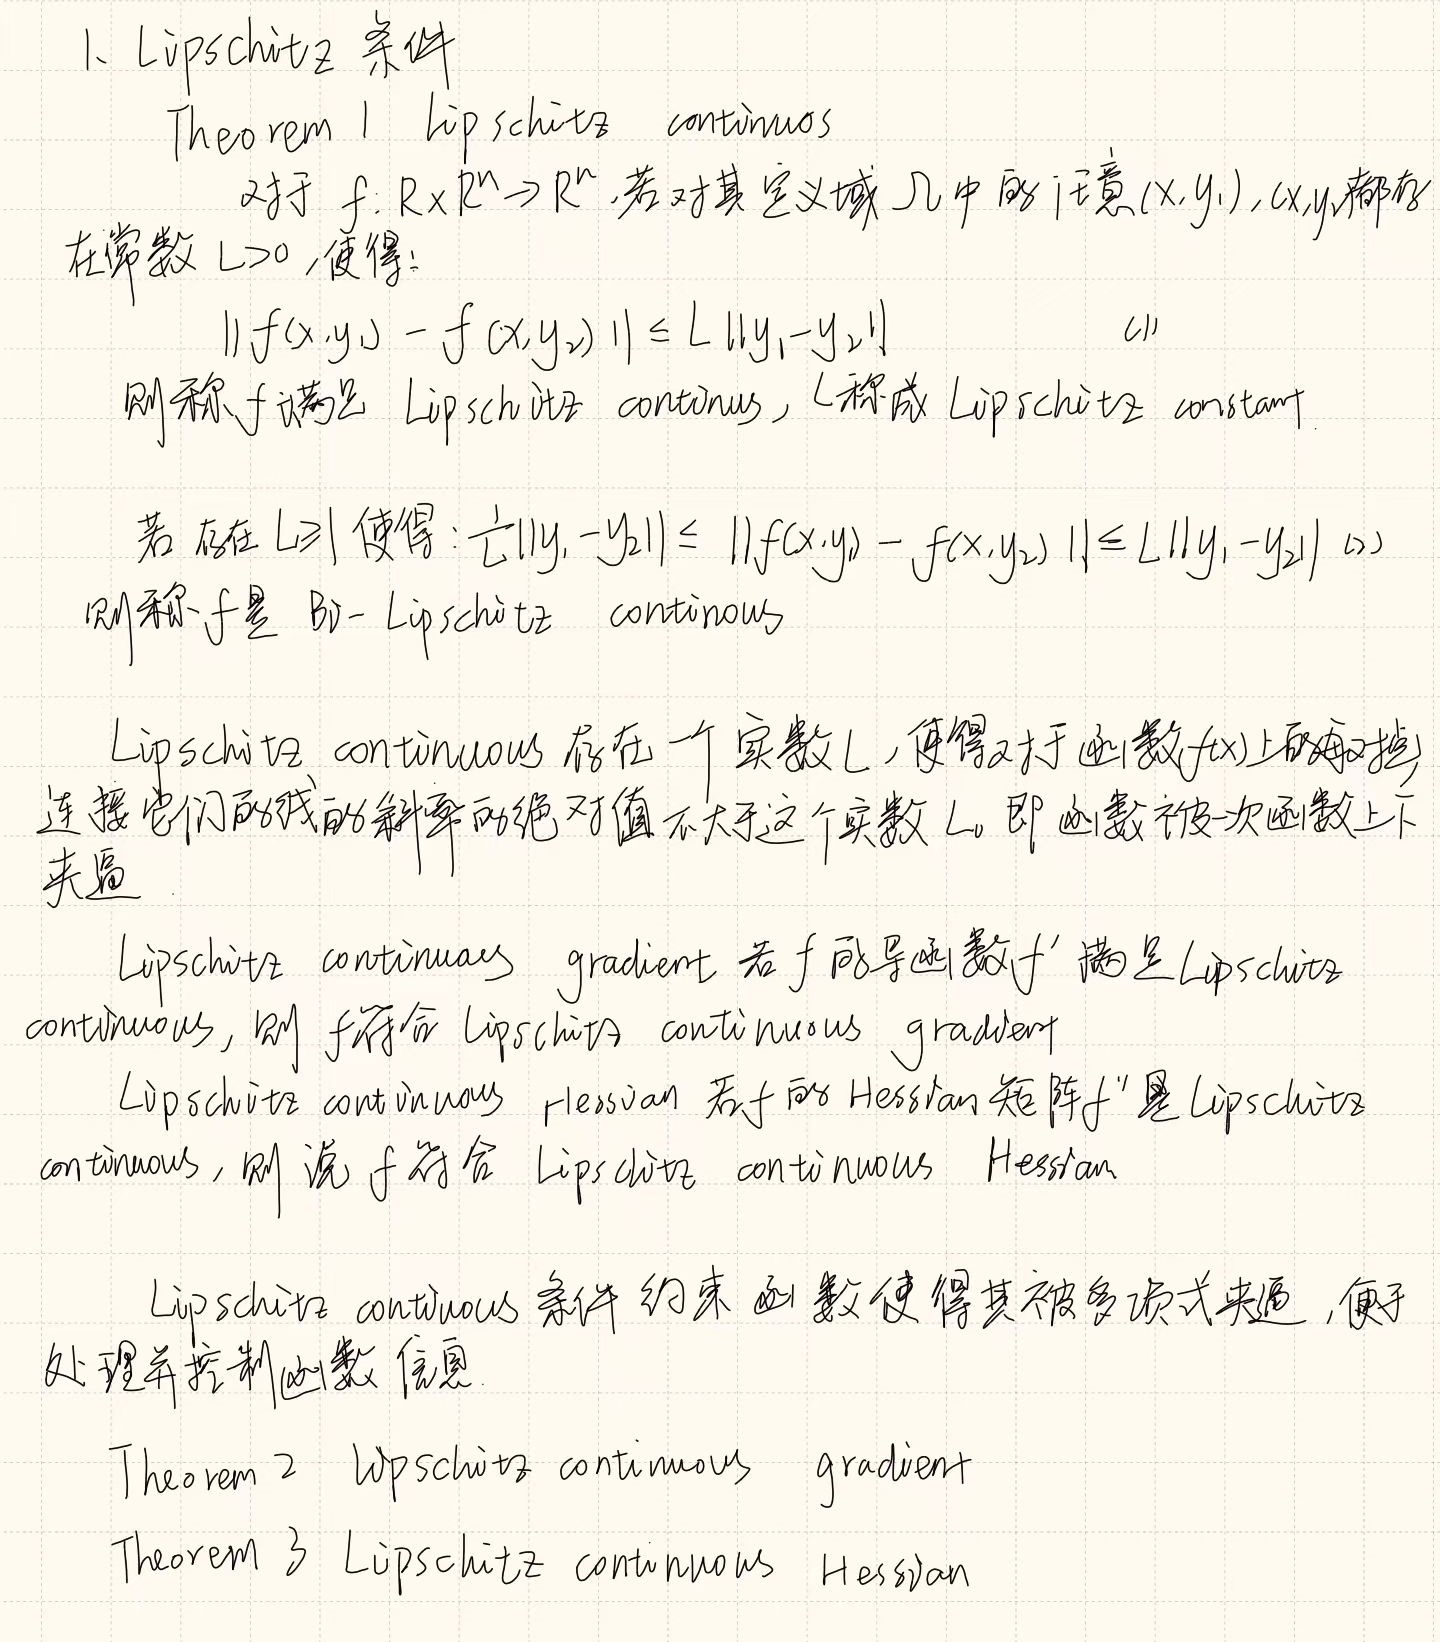 1、Lipschitz 条件
Theorem 1 Lipschitz continuos
对于 f: R×Rⁿ→Rⁿ,若对其定义域 Ω 中的任意(x,y₁),(x,y₂)都存
在常数 L>0,使得:
||f(x,y₁) - f(x,y₂)|| ≤ L||y₁-y₂|| (1)
则称 f 满足 Lipschitz continus, L称成 Lipschitz constant.
若存在 L≥1 使得: 1/L||y₁-y₂|| ≤ ||f(x,y₁) - f(x,y₂)|| ≤ L||y₁-y₂|| (2)
则称 f 是 Bi-Lipschitz continous
Lipschitz continuous 存在一个实数L,使得对于函数f(x)上的每对点,
连接它们的线的斜率的绝对值不大于这个实数L。即函数被一次函数上下
夹逼.
Lipschitz continuous gradient 若 f 的导函数 f' 满足 Lipschitz
continuous, 则 f 符合 Lipschitz continuous gradient
Lipschitz continuous Hessian 若 f 的 Hessian 矩阵 f'' 是 Lipschitz
continuous, 则说 f 符合 Lipschitz continuous Hessian
Lipschitz continuous 条件约束函数使得其被多项式夹逼,便于
处理并控制函数信息.
Theorem 2 Lipschitz continuous gradient
Theorem 3 Lipschitz continuous Hessian